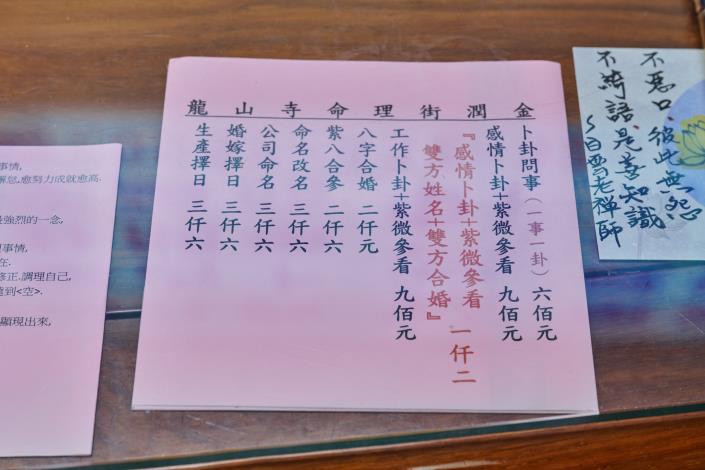 龍山寺命理街潤金
卜卦問事(一事一卦) 六佰元
感情卜卦+紫微參看 九佰元
『感情卜卦+紫微參看
雙方姓名+雙方合婚』 一仟二
工作卜卦+紫微參看 九佰元
八字合婚 二仟元
紫八合參 二仟六
命名改名 三仟六
公司命名 三仟六
婚嫁擇日 三仟六
生產擇日 三仟六
不惡口,彼此無怨
不綺語,是善知識
~白雲老禪師
事情,
懈怠,愈努力成就愈高.
最強烈的一念,
事情,
在.
修正.調理自己,
到<空>.
顯現出來,